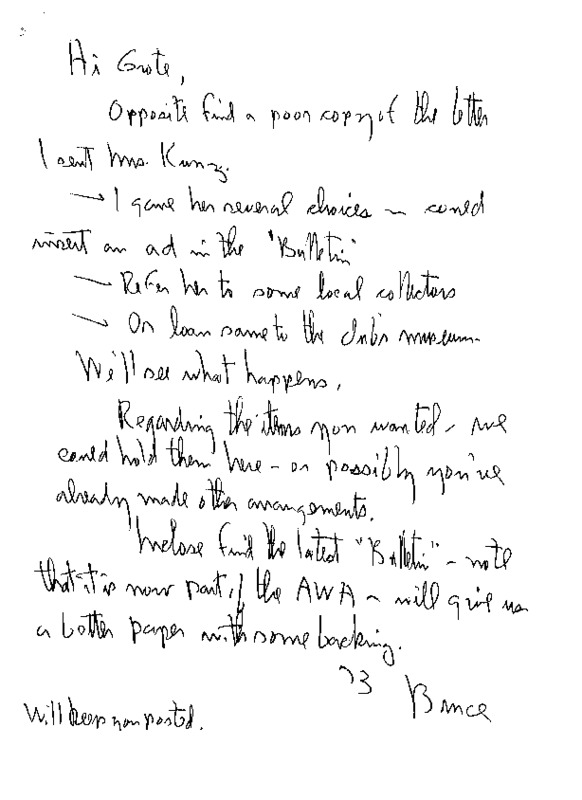 Hi Grote,
Opposite find a poor copy of the letter
I sent Mrs. Kunz.
→ I gave her several choices – could
insert an ad in the "Bulletin"
— Refer her to some local collectors
→ Or loan same to the club's museum.
We'll see what happens.
Regarding the items you wanted – we
could hold them here – or possibly you've
already made other arrangements.
Inclose find the latest "Bulletin" – note
that it is now part of the AWA – will give us
a better paper with some backing.
73 Bruce
Will keep you posted.